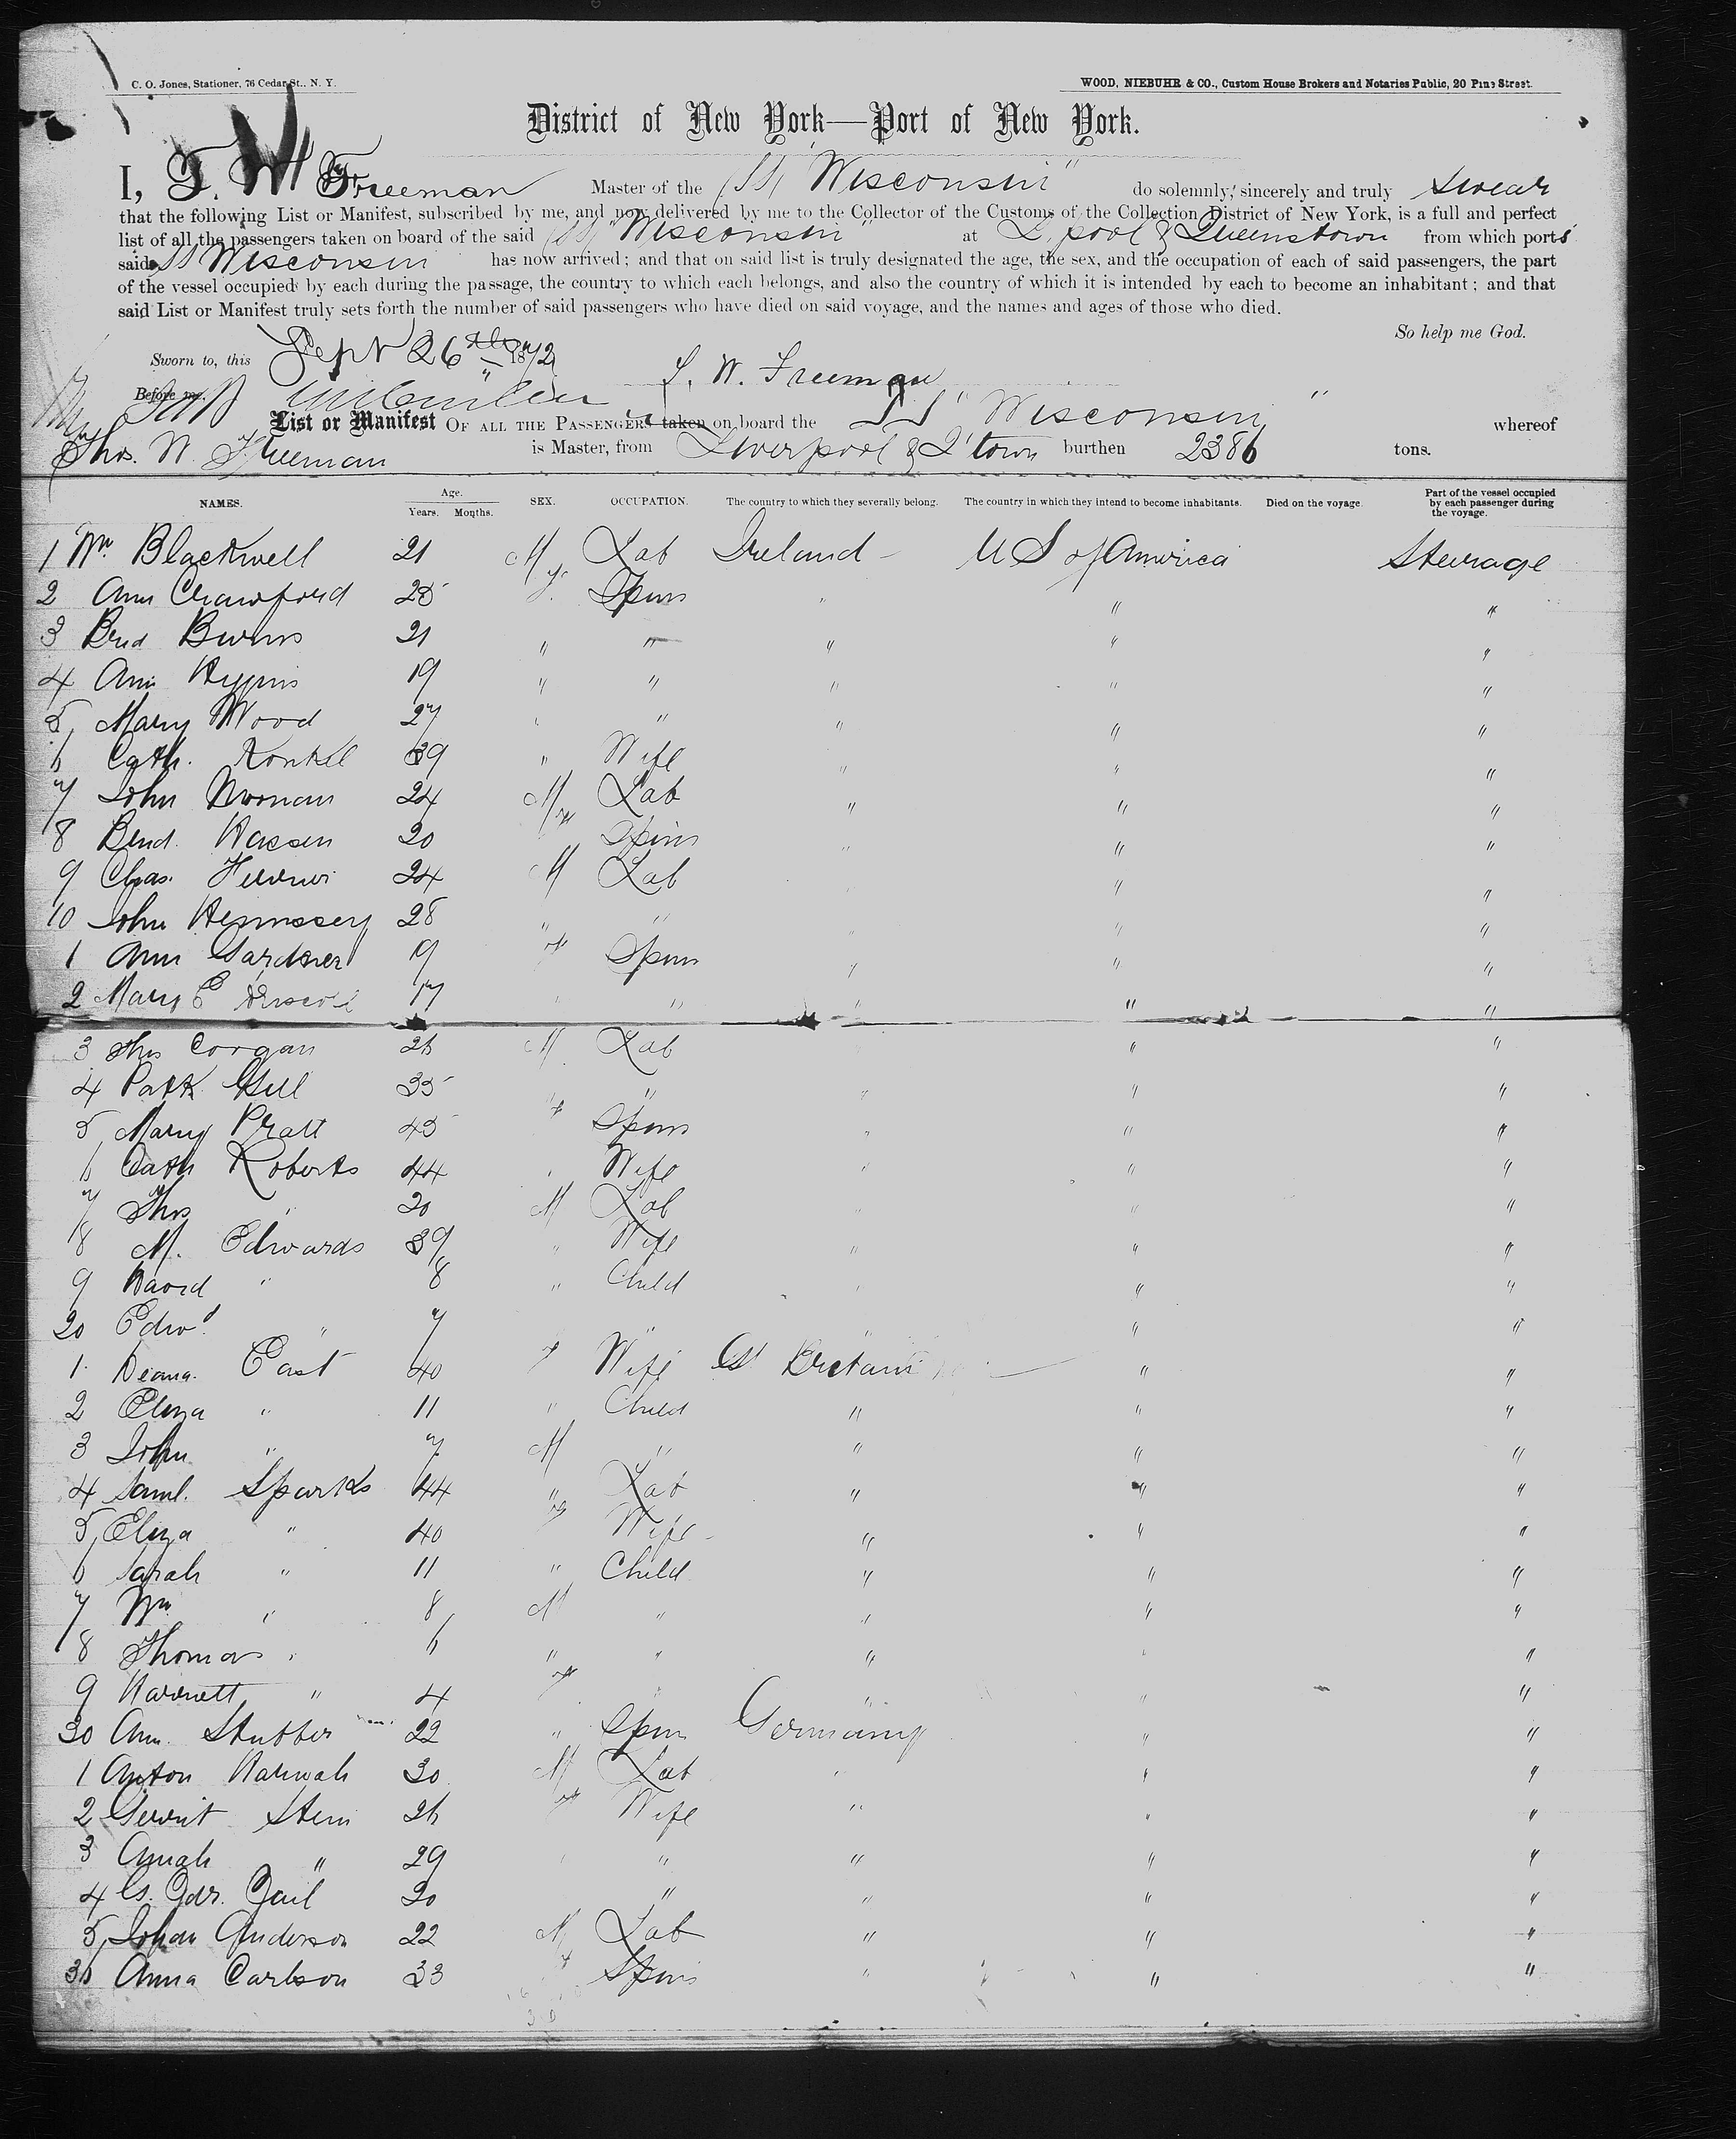 C. O. Jones, Stationer, 76 Cedar St., N. Y.
WOOD, NIEBUHR & CO., Custom House Brokers and Notaries Public, 20 Pine Street.
District of New York—Port of New York.
I, T. W. Freeman Master of the SS "Wisconsin" do solemnly, sincerely and truly swear
that the following List or Manifest, subscribed by me, and now delivered by me to the Collector of the Customs of the Collection District of New York, is a full and perfect
list of all the passengers taken on board of the said SS "Wisconsin" at L'pool & Queenstown from which ports
said SS Wisconsin has now arrived; and that on said list is truly designated the age, the sex, and the occupation of each of said passengers, the part
of the vessel occupied by each during the passage, the country to which each belongs, and also the country of which it is intended by each to become an inhabitant; and that
said List or Manifest truly sets forth the number of said passengers who have died on said voyage, and the names and ages of those who died.
So help me God.
Sworn to, this Sept 26th 1872
T. W. Freeman
Before me,
List or Manifest OF ALL THE PASSENGERS taken on board the SS "Wisconsin" whereof
Thos. W. Freeman is Master, from Liverpool & Q'town burthen 2386 tons.
NAMES. Age. Years. Months. SEX. OCCUPATION. The country to which they severally belong. The country in which they intend to become inhabitants. Died on the voyage. Part of the vessel occupied by each passenger during the voyage.
1 Wm Blackwell 21 M Lab Ireland U S of America Steerage
2 Ann Crawford 25 f Spins " " "
3 Brid Burns 21 " " " " "
4 Ann Higgins 19 " " " " "
5 Mary Wood 27 " " " " "
6 Cath. 39 " Wife " " "
7 John Noonan 24 M Lab " " "
8 Brid. 20 f Spins " " "
9 Chas. 24 M Lab " " "
10 John Hennessey 28 " " " " "
1 Ann Gardner 19 f Spins " " "
2 Mary E Driscoll 17 " " " " "
3 Thos Corgan 26 M Lab " "
4 Patk Gill 35 " " " " "
5 Mary Pratt 45 f Spins " " "
6 Cath Roberts 44 " Wife " " "
7 Thos " 20 M Lab " " "
8 M. Edwards 39 " Wife " " "
9 David " 8 " Child " " "
20 Edwd " 7 " " " "
1 Deana East 40 f Wife Gt Britain " "
2 Eliza " 11 " Child " " "
3 John " 7 M " " " "
4 Saml. Sparks 44 " Lab " " "
5 Eliza " 40 f Wife " " "
6 Sarah " 11 " Child " " "
7 Wm " 8 M " " " "
8 Thomas " 6 " " " " "
9 Harriett " 4 f " " "
30 Ann Stubber 22 " Spin Germany " "
1 Anton 30 M Lab " " "
2 Gerrit Stein 26 f Wife " " "
3 Annah " 29 " " " " "
4 20 " " " "
5 Johan Anderson 22 M Lab " " "
36 Anna Carlson 33 f Spins " " "